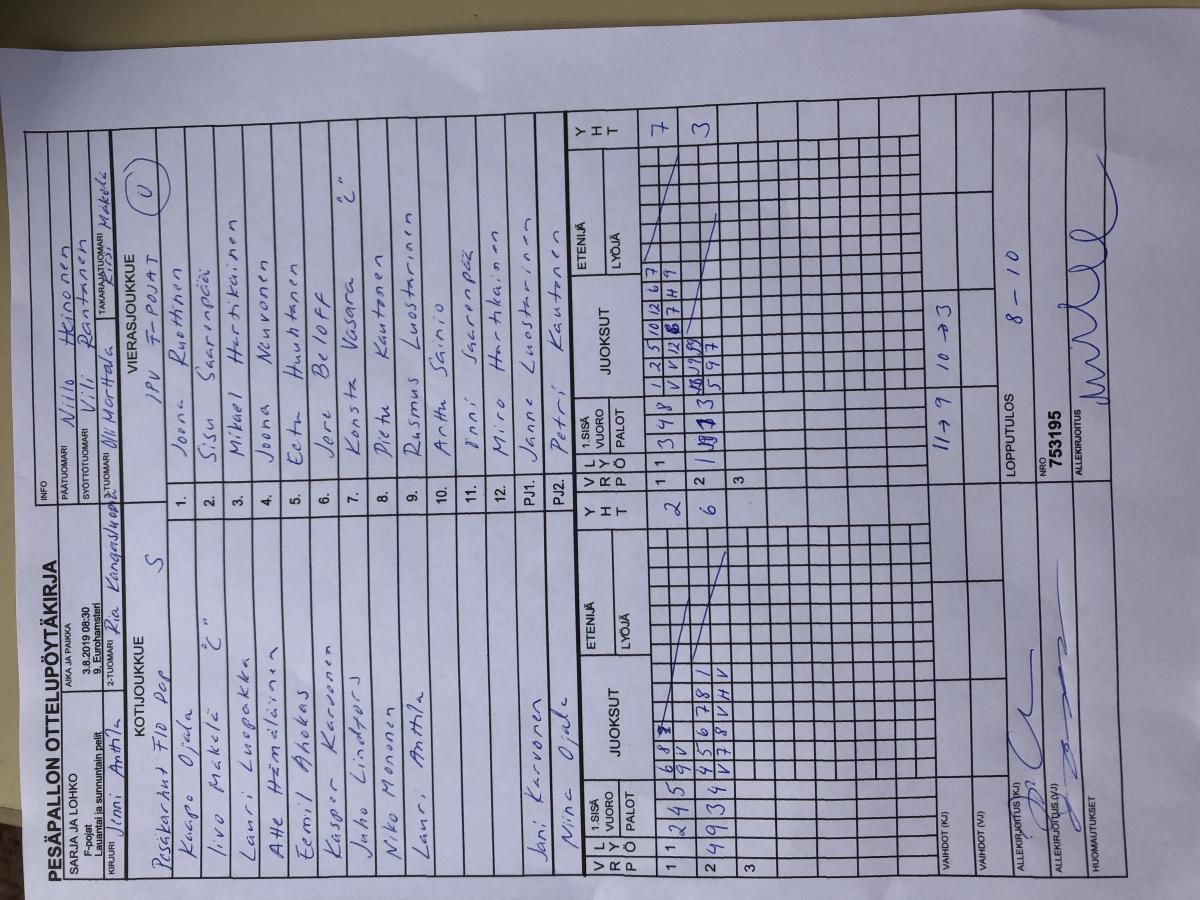 PESÄPALLON OTTELUPÖYTÄKIRJA
SARJA JA LOHKO
F-pojat
Lauantai ja sunnuntain pelit
AIKA JA PAIKKA
3.8.2019 08:30
9. Eurohamsteri
INFO
PÄÄTUOMARI Niilo Heinonen
SYÖTTÖTUOMARI Vili Rantanen
KIRJURI Jinni Anttila
2-TUOMARI Pia Kangasluoma
3-TUOMARI Olli Merttala
TAKARAJATUOMARI Kirsi Mäkelä
KOTIJOUKKUE
Pesäkarhut F10 Pop S
VIERASJOUKKUE
JPV F-POJAT U
Kaapo Ojala
Iivo Mäkelä "C"
Lauri Luopakka
Atte Hämäläinen
Eemil Ahokas
Kasper Karvonen
Juho Lindfors
Niko Mononen
Lauri Anttila
Jani Karvonen
Niina Ojala
1. Joona Ruottinen
2. Sisu Saarenpää
3. Mikael Hartikainen
4. Joona Neuvonen
5. Eetu Huuhtanen
6. Jere Beloff
7. Konsta Vasara "C"
8. Pietu Kautonen
9. Rasmus Luostarinen
10. Arttu Sainio
11. Onni Saarenpää
12. Miro Hartikainen
PJ1. Janne Luostarinen
PJ2. Petri Kautonen
V R P
L Y Ö
1.SISÄ VUORO
PALOT
JUOKSUT
ETENIJÄ
LYÖJÄ
Y H T
V R P
L Y Ö
1.SISÄ VUORO
PALOT
JUOKSUT
ETENIJÄ
LYÖJÄ
Y H T
1 1 2 4 5 6 8
9 V
2
1 1 3 4 8 1 2 5 10 12 6 7
V V 12 7 H 9
7
2 4 9 3 4 4 5 6 7 8 1
V 7 8 V H V
6
2 1 3
5 9 7
3
3
3
VAIHDOT (KJ)
11→9 10→3
VAIHDOT (VJ)
ALLEKIRJOITUS (KJ)
LOPPUTULOS
8 - 10
ALLEKIRJOITUS (VJ)
NRO
753195
HUOMAUTUKSET
ALLEKIRJOITUS